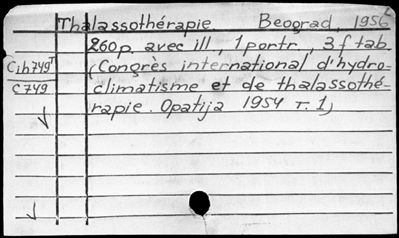 Thalassothérapie Beograd, 1956
260p. avec ill., 1 portr., 3 f tab.
Cih749T (Congrès international d'hydro-
C749 climatisme et de thalassothé-
rapie. Opatija 1954 T. 1)